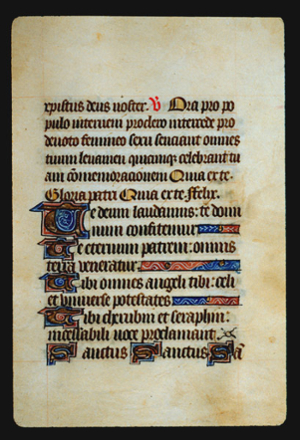 xpistus deus noster. V Ora pro po
pulo interueni pro clero intercede pro
deuoto femineo sexu senciant omnes
tuum leuamen quicumq; celebrant tu
am commemorationem Quia ex te.
Gloria patri Quia ex te. ffelix.
Te deum laudamus: te domi
num confitemur
Te eternum patrem: omnis
terra veneratur.
Tibi omnes angeli tibi: celi
et vniuerse potestates
Tibi cherubim et seraphim:
incessabili uoce proclamant.
Sanctus Sanctus Sā